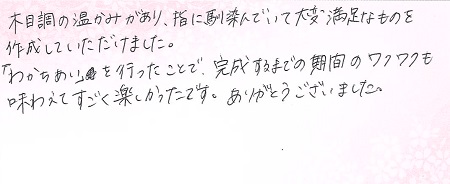 木目調の温かみがあり、指に馴染んでいて大変満足なものを
作成していただけました。
「わかちあい」を行ったことで、完成するまでの期間のワクワクも
味わえてすごく楽しかったです。ありがとうございました。